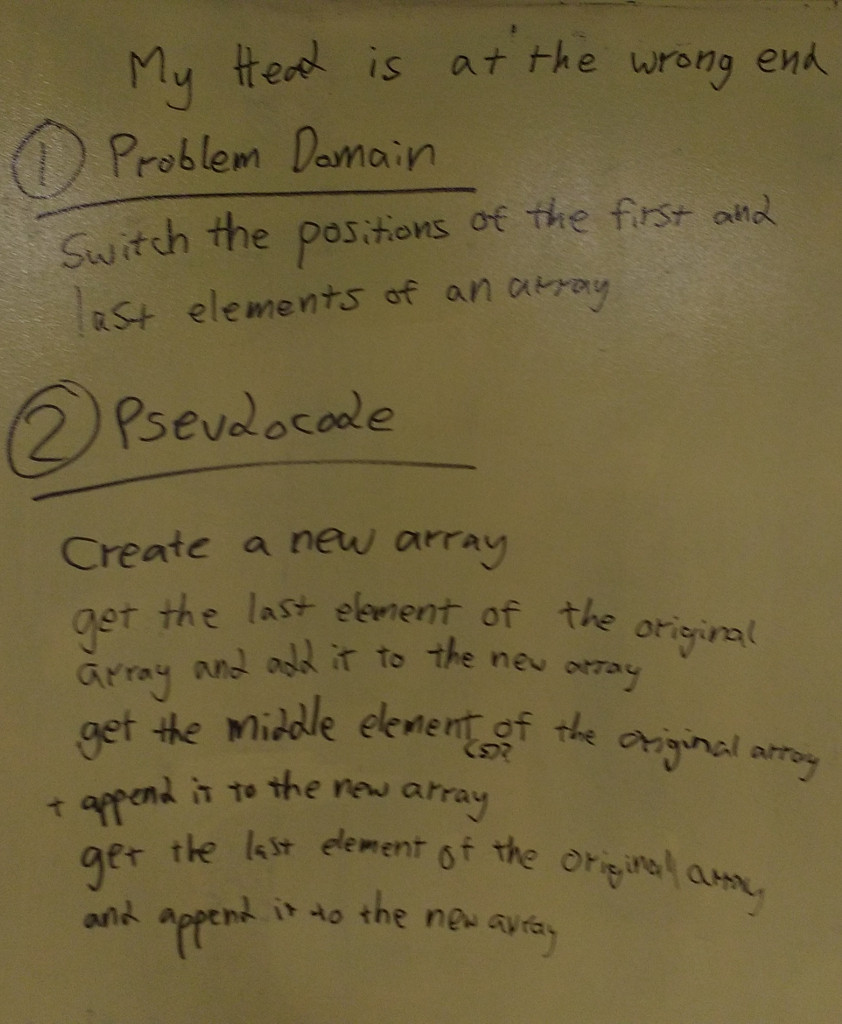 My Head is at the wrong end
① Problem Domain
Switch the positions of the first and
last elements of an array
② Pseudocode
Create a new array
get the last element of the original
array and add it to the new array
get the middle element of the original array
(s)?
+ append it to the new array
get the last element of the original array
and append it to the new array